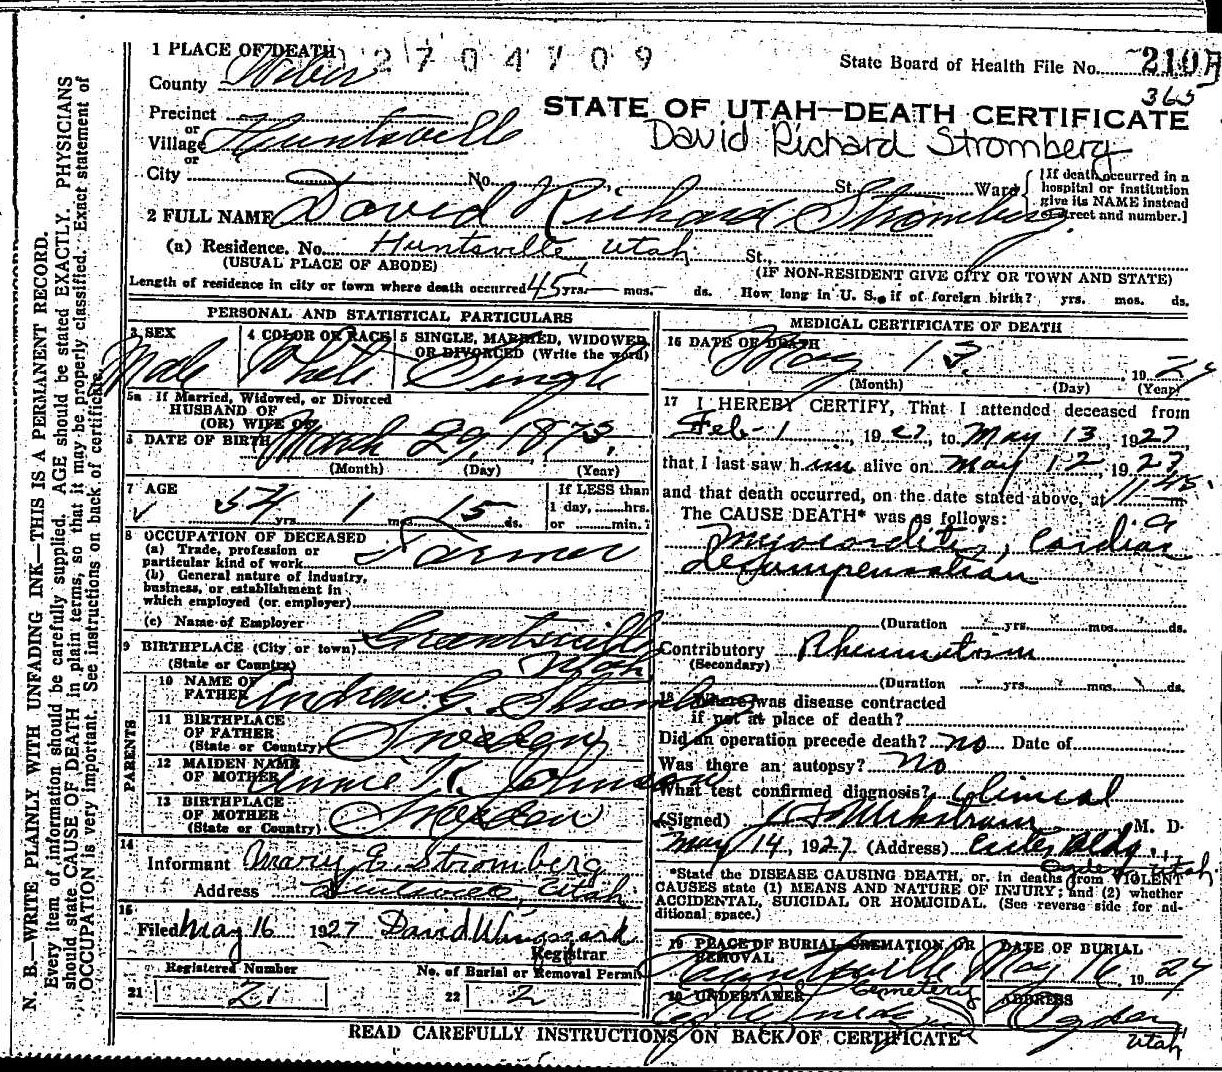 N. B.—WRITE PLAINLY WITH UNFADING INK—THIS IS A PERMANENT RECORD.
Every item of information should be carefully supplied. AGE should be stated EXACTLY. PHYSICIANS
should state CAUSE OF DEATH in plain terms, so that it may be properly classified. Exact statement of
OCCUPATION is very important. See instructions on back of certificate.
1 PLACE OF DEATH
2704709
State Board of Health File No. 210A
365
County Weber
STATE OF UTAH—DEATH CERTIFICATE
David Richard Stromberg
Precinct
or
Village Huntsville
or
City No. St. Ward
[If death occurred in a
hospital or institution
give its NAME instead
of street and number.]
2 FULL NAME David Richard Stromberg
(a) Residence. No. Huntsville, Utah St.,
(USUAL PLACE OF ABODE)
(IF NON-RESIDENT GIVE CITY OR TOWN AND STATE)
Length of residence in city or town where death occurred 45 yrs. — mos. - ds. How long in U. S., if of foreign birth? yrs. mos. ds.
PERSONAL AND STATISTICAL PARTICULARS
3 SEX
Male
4 COLOR OR RACE
White
5 SINGLE, MARRIED, WIDOWED
OR DIVORCED (Write the word)
Single
5a If Married, Widowed, or Divorced
HUSBAND OF
(OR) WIFE OF
6 DATE OF BIRTH March 29, 1873.
(Month) (Day) (Year)
7 AGE
54 yrs. 1 mos. 15 ds.
If LESS than
1 day, hrs.
or min.?
8 OCCUPATION OF DECEASED
(a) Trade, profession or
particular kind of work Farmer
(b) General nature of industry,
business, or establishment in
which employed (or employer)
(c) Name of Employer
9 BIRTHPLACE (City or town) Grantsville
(State or Country) Utah
PARENTS
10 NAME OF
FATHER Andrew G. Stromberg
11 BIRTHPLACE
OF FATHER
(State or Country) Sweden
12 MAIDEN NAME
OF MOTHER Annie K. Johnson
13 BIRTHPLACE
OF MOTHER
(State or Country) Sweden
14
Informant Mary E. Stromberg
Address Huntsville, Utah
15
Filed May 16 1927 David Wangsgard
Registrar
Registered Number
21 21
No. of Burial or Removal Permit
22 2
MEDICAL CERTIFICATE OF DEATH
16 DATE OF DEATH
May 13. 1927
(Month) (Day) (Year)
17 I HEREBY CERTIFY, That I attended deceased from
Feb-1, 1927, to May 13, 1927,
that I last saw him alive on May 12, 1927
and that death occurred, on the date stated above, at 11 45 a m.
The CAUSE DEATH* was as follows:
Myocarditis, Cardiac
decompensation
(Duration yrs. mos. ds.
Contributory Rheumatism
(Secondary)
(Duration yrs. mos. ds.
18 Where was disease contracted
if not at place of death?
Did an operation precede death? no Date of
Was there an autopsy? no
What test confirmed diagnosis? Clinical
(Signed) M. D.
May 14, 1927. (Address) Bldg.,
Ogden Utah
*State the DISEASE CAUSING DEATH, or, in deaths from VIOLENT
CAUSES state (1) MEANS AND NATURE OF INJURY; and (2) whether
ACCIDENTAL, SUICIDAL OR HOMICIDAL. (See reverse side for ad-
ditional space.)
19 PLACE OF BURIAL, CREMATION, OR
REMOVAL
Huntsville
Cemetery
DATE OF BURIAL
May 16, 1927
20 UNDERTAKER
ADDRESS
Ogden
Utah
READ CAREFULLY INSTRUCTIONS ON BACK OF CERTIFICATE